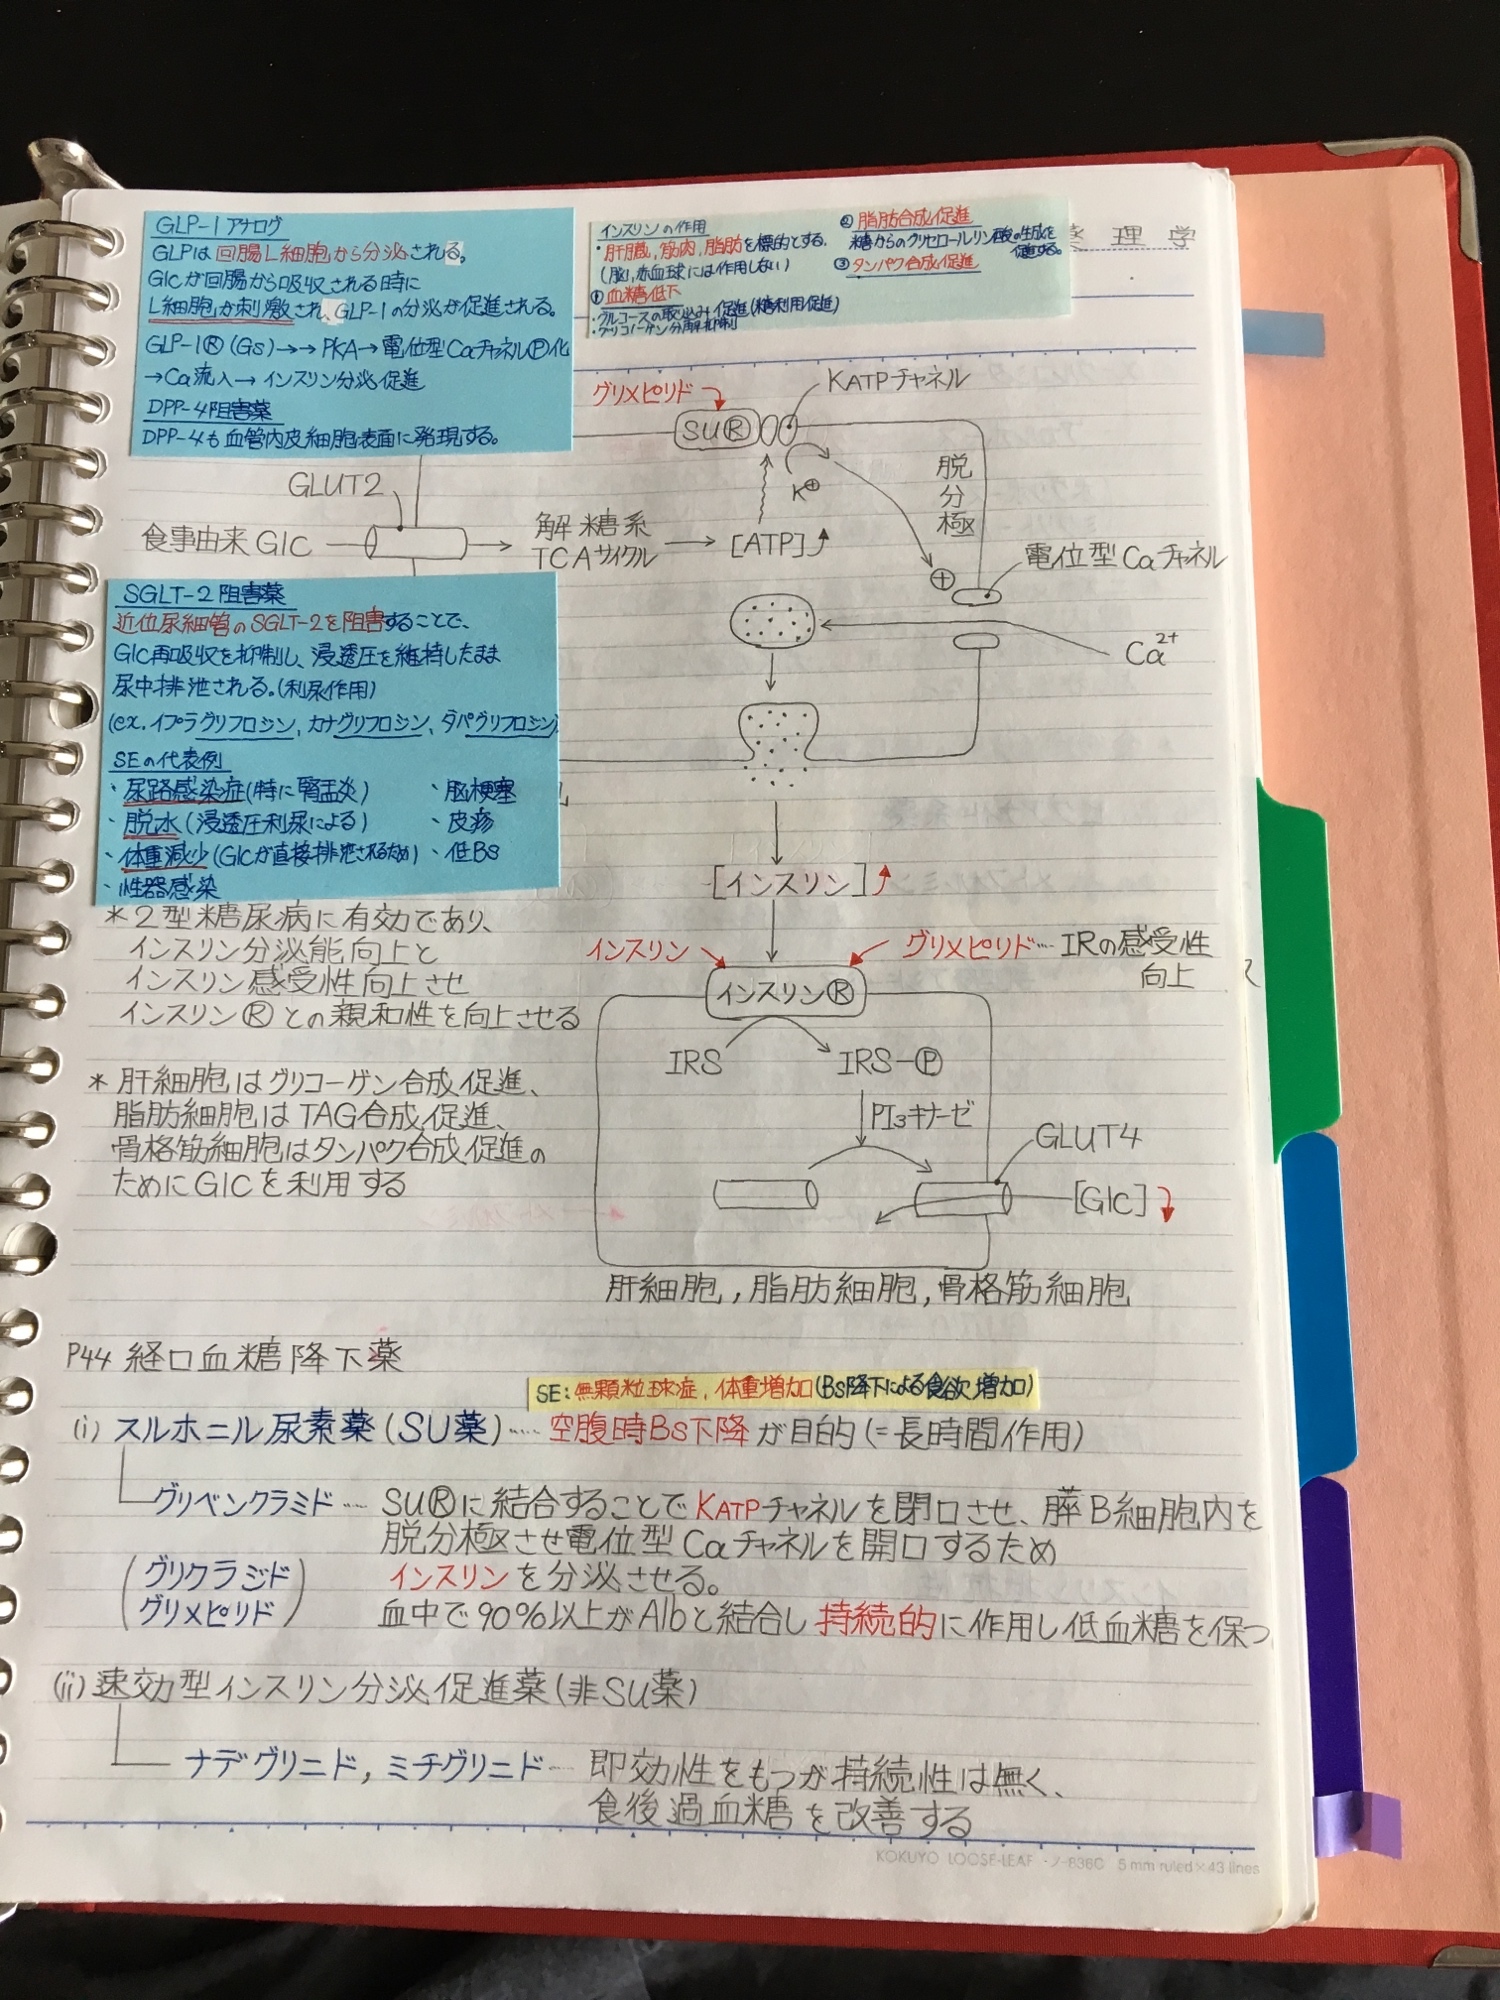 GLP-1 アナログ
GLPは回腸L細胞から分泌される。
Glcが回腸から吸収される時に
L細胞が刺激され、GLP-1の分泌が促進される。
GLP-1Ⓡ(Gs)→→PKA→電位型CaチャネルⓅ化
→Ca流入→インスリン分泌促進
DPP-4阻害薬
DPP-4も血管内皮細胞表面に発現する。
インスリンの作用
・肝臓、筋肉、脂肪を標的とする。
(脳、赤血球には作用しない)
① 血糖低下
・グルコースの取込み促進(糖利用促進)
・グリコーゲン分解抑制
② 脂肪合成促進
糖からのグリセロールリン酸の生成を
促進する。
③ タンパク合成促進
理 学
グリメピリド
KATPチャネル
SUⓇ
K⊕
脱分極
GLUT2
食事由来 Glc
解糖系
TCAサイクル
[ATP]
⊕
電位型Caチャネル
Ca2+
SGLT-2阻害薬
近位尿細管のSGLT-2を阻害することで、
Glc再吸収を抑制し、浸透圧を維持したまま
尿中排泄される。(利尿作用)
(ex. イプラグリフロジン、カナグリフロジン、ダパグリフロジン)
SEの代表例
・尿路感染症(特に腎盂炎)
・脳梗塞
・脱水(浸透圧利尿による)
・皮疹
・体重減少(Glcが直接排泄されるため)
・低Bs
・性器感染
[インスリン]
*2型糖尿病に有効であり、
インスリン分泌能向上と
インスリン感受性向上させ
インスリンⓇとの親和性を向上させる
インスリン
グリメピリド…IRの感受性
向上
インスリンⓇ
IRS
IRS-Ⓟ
PI3キナーゼ
GLUT4
[Glc]
*肝細胞はグリコーゲン合成促進、
脂肪細胞はTAG合成促進、
骨格筋細胞はタンパク合成促進の
ためにGlcを利用する
肝細胞,脂肪細胞,骨格筋細胞
P44 経口血糖降下薬
SE:無顆粒球症,体重増加(Bs降下による食欲増加)
(i) スルホニル尿素薬(SU薬)…空腹時Bs下降が目的(=長時間作用)
グリベンクラミド…SUⓇに結合することでKATPチャネルを閉口させ、膵B細胞内を
脱分極させ電位型Caチャネルを開口するため
(グリクラジド
グリメピリド)
インスリンを分泌させる。
血中で90%以上がAlbと結合し持続的に作用し低血糖を保つ
(ii) 速効型インスリン分泌促進薬(非SU薬)
ナデグリニド,ミチグリニド…即効性をもつが持続性は無く、
食後過血糖を改善する
KOKUYO LOOSE-LEAF ノ-836C 5mm ruled×43 lines